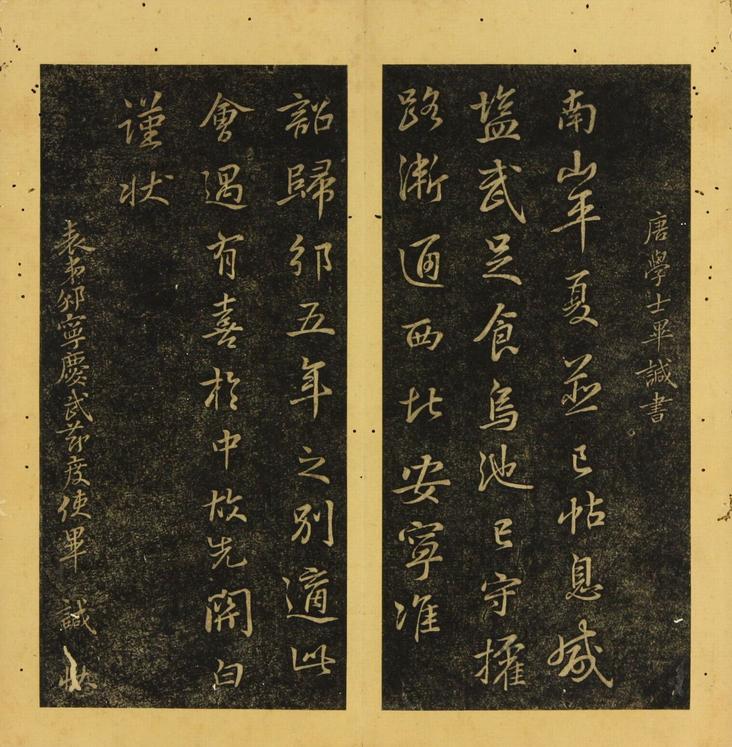 唐學士畢諴書
南山平夏並已帖息咸
塩武足食烏池已守擢
路漸通西北安寧准
詔歸邠五年之别適此
會遇有喜於中故先開白
謹状
表弟邠寧慶武節度使畢諴状